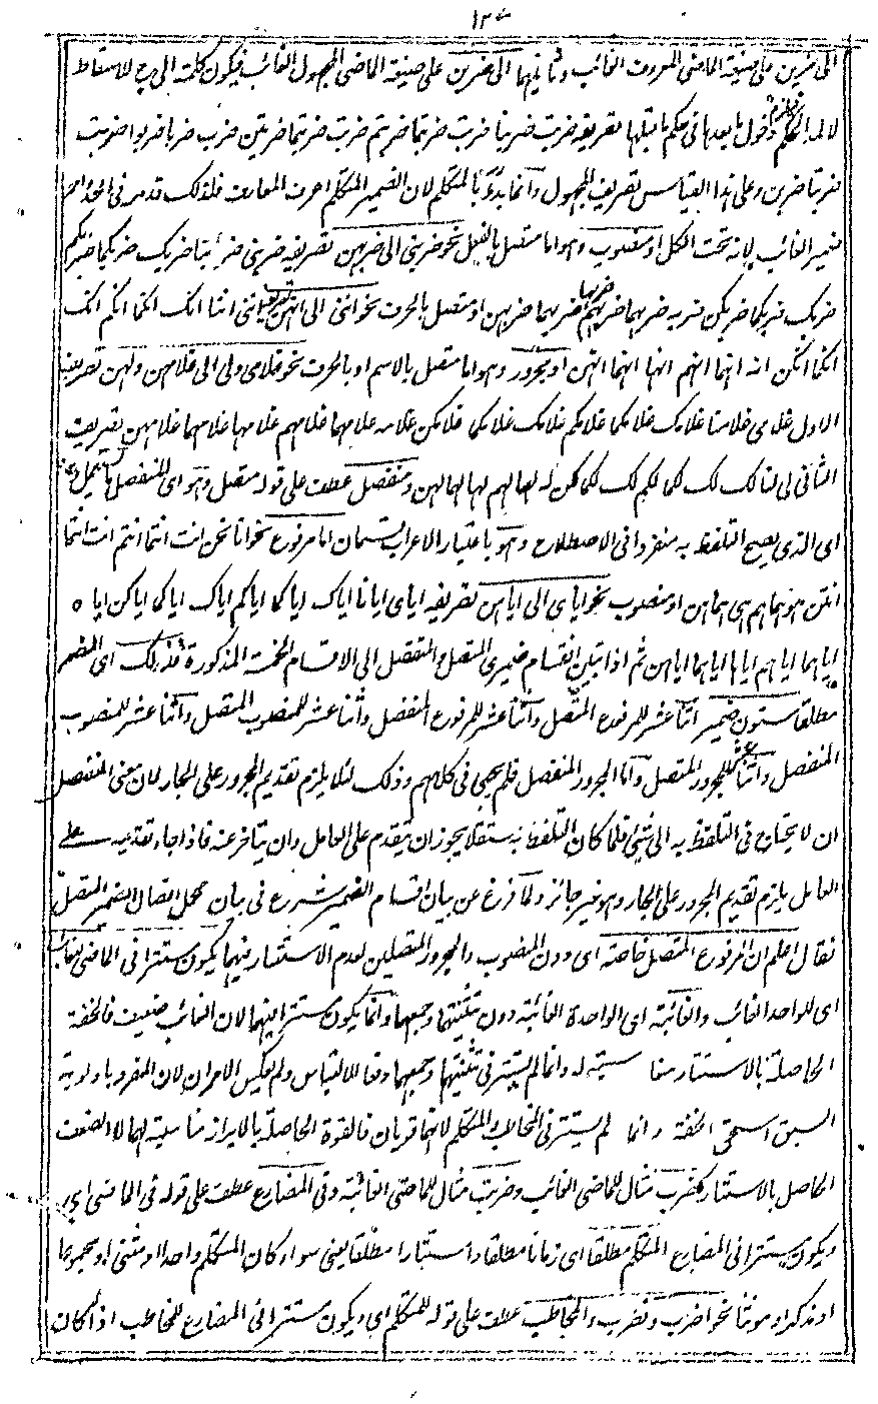 الى ضربن على صيغة الماضى المعروف الغائب وثانيهما الى ضربن على صيغة الماضى المجهول الغائب فيكون كلمة الى ح للاسقاط
لا لمد الحكم دخول ما بعدها فى حكم ما قبلها تعريفه ضربت ضربنا ضربت ضربتما ضربتم ضربت ضربتما ضربتن ضرب ضربا ضربوا ضربت
ضربتا ضربن وعلى هذا القياس تصريف المجهول وانما بدؤ بالمتكلم لان الضمير المتكلم اعرف المعارف فلذلك قدم
ضمير الغائب لانه تحت الكل او منصوب وهو اما متصل بالفعل نحو ضربنى الى ضربهن تصريفه ضربنى ضربنا ضربك ضربكما ضربكم
ضربك ضربكما ضربكن ضربه ضربهما ضربهم ضربها ضربهما ضربهن او متصل بالحرف نحو اننى الى انهن تصريفه اننى اننا انك انكما انكم انك
انكما انكن انه انهما انهم انها انهما انهن او مجرور وهو اما متصل بالاسم او بالحرف نحو غلامى ولى الى غلامهن ولهن تصريف
الاول غلامى غلامنا غلامك غلامكما غلامكم غلامك غلامكما غلامكن غلامه غلامهما غلامهم غلامها غلامهما غلامهن تصريف
الثانى لى لنا لك لكما لكم لك لكما لكن له لهما لهم لها لهما لهن ومنفصل عطف على قوله متصل وهو اى المنفصل
اى الذى يصح التلفظ به منفردا فى الاصطلاح وهو باعتبار الاعراب قسمان اما مرفوع نحو انا نحن انت انتما انتم انت انتما
انتن هو هما هم هى هما هن او منصوب نحو اياى الى اياهن تصريفه اياى ايانا اياك اياكما اياكم اياك اياكما اياكن اياه
اياهما اياهم اياها اياهما اياهن ثم اذا تبين اقسام ضميرى المتصل والمنفصل الى الاقسام الخمسة المذكورة فذلك اى المضمر
مطلقا ستون ضمير اثنا عشر للمرفوع المتصل واثنا عشر للمرفوع المنفصل واثنا عشر للمنصوب المتصل واثنا عشر للمنصوب
المنفصل واثنا عشر للمجرور المتصل واما المجرور المنفصل فلم يجئ فى كلامهم وذلك لئلا يلزم تقديم المجرور على الجار لان معنى المنفصل
ان لا يحتاج فى التلفظ به الى شئ فلما كان التلفظ به مستقلا يجوز ان يتقدم على العامل وان يتاخر عنه فاذا جاء تقديمه على
العامل يلزم تقديم المجرور على الجار وهو غير جائز ولما فرغ عن بيان اقسام الضمير شرع فى بيان محل اتصال الضمير المتصل
فقال اعلم ان المرفوع المتصل خاصة اى دون المنصوب والمجرور المتصلين لعدم الاستتار فيهما يكون مستترا فى الماضى للغائب
اى للواحد الغائب والغائبة اى الواحدة الغائبة دون تثنيتهما وجمعهما وانما يكون مستترا فيهما لان الغائب ضعيف فالخفة
الحاصلة بالاستتار مناسبة له وانما لم يستتر فى تثنيتهما وجمعهما دفعا للالتباس ولم يعكس الامر ان لان المفرد با ولوية
السبق استحق الخفة وانما لم يستتر فى المخاطب والمتكلم لانهما قويان فالقوة الحاصلة بالابراز مناسبة لهما لا الضعف
الحاصل بالاستتار كضرب مثال للماضى الغائب وضربت مثال للماضى الغائبة وفى المضارع عطف على قوله فى الماضى اى
ويكون مستترا فى المضارع المتكلم مطلقا اى زمانا مطلقا او استتارا مطلقا يعنى سواء كان المتكلم واحدا او مثنى او مجموعا
او مذكرا او مونثا نحو اضرب ونضرب والمخاطب عطف على قوله للمتكلم اى ويكون مستترا فى المضارع للمخاطب اذا كان